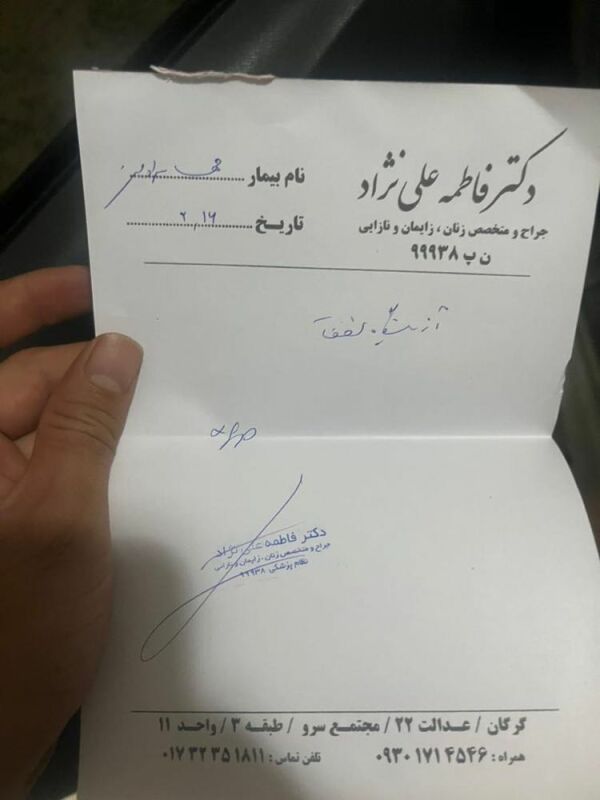 دکتر فاطمه علی نژاد
جراح و متخصص زنان ، زایمان و نازایی
ن پ ۹۹۹۳۸
نام بیمار
تاریخ ۲٫۱۶
آزمایشگاه لطفاً
دکتر فاطمه علی نژاد
جراح و متخصص زنان ، زایمان و نازایی
نظام پزشکی ۹۹۹۳۸
گرگان / عدالت ۲۲ / مجتمع سرو / طبقه ۳ / واحد ۱۱
همراه : ۰۹۳۰۱۷۱۴۵۴۶ تلفن تماس : ۰۱۷۳۲۳۵۱۸۱۱